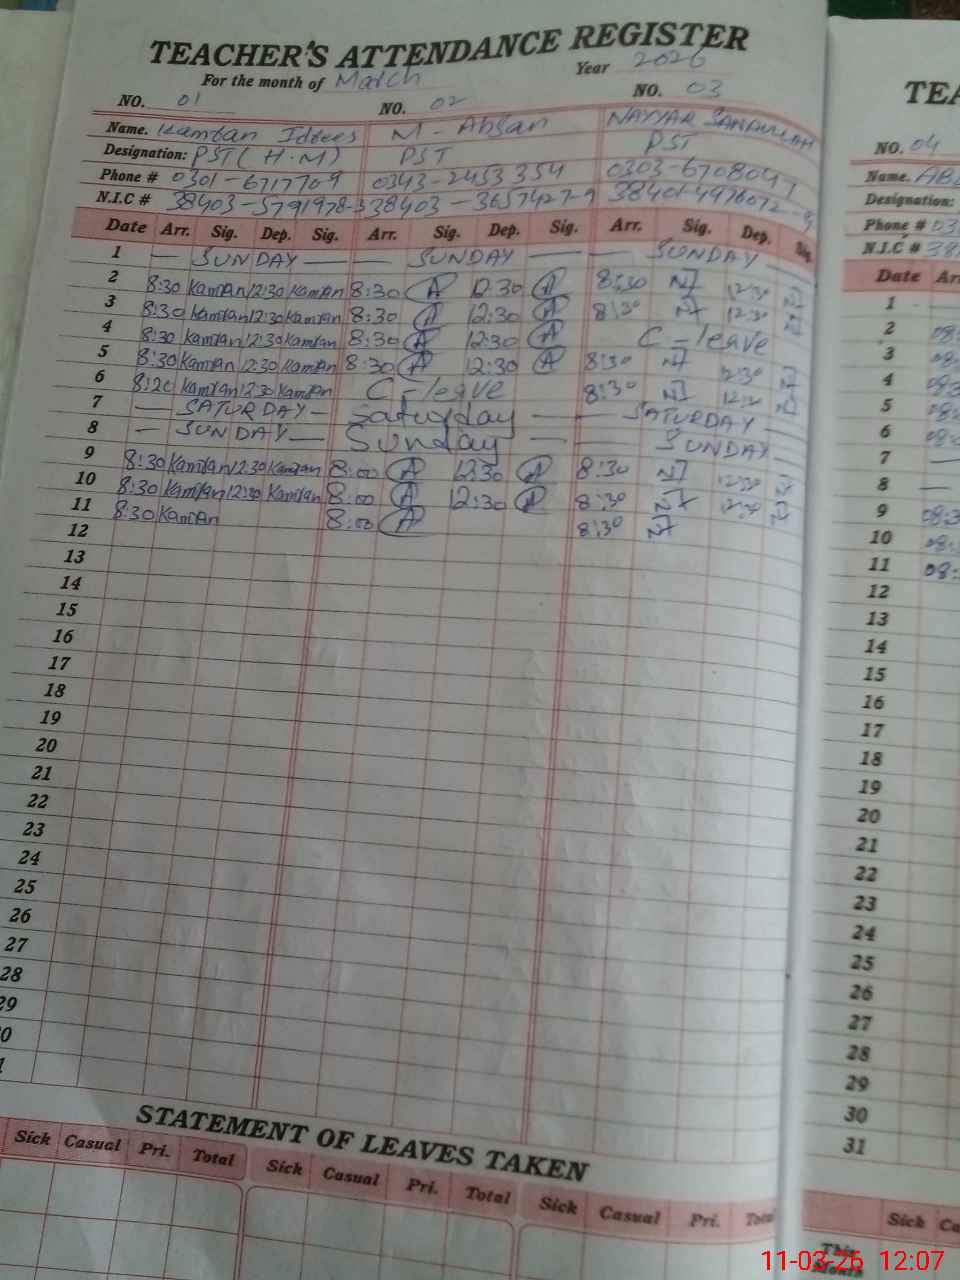 TEACHER'S ATTENDANCE REGISTER
For the month of March Year 2026
NO. 01 NO. 02 NO. 03
Name. Kamran Idrees M - Ahsan NAYYAR SANAULLAH
Designation: PST (H.M) PST PST
Phone # 0301-6717709 0343-2453354 0303-6708047
N.I.C # 38403-5791978-3 38403-3657427-9 38401-4976072-9
Date Arr. Sig. Dep. Sig. Arr. Sig. Dep. Sig. Arr. Sig. Dep. Sig.
1 — SUNDAY — — SUNDAY — — SUNDAY —
2 8:30 Kamran 12:30 Kamran 8:30 A 12:30 A 8:30 NJ 12:30 NJ
3 8:30 Kamran 12:30 Kamran 8:30 A 12:30 A 8:30 NJ 12:30 NJ
4 8:30 Kamran 12:30 Kamran 8:30 A 12:30 A C - leave
5 8:30 Kamran 12:30 Kamran 8:30 A 12:30 A 8:30 NJ 12:30 NJ
6 8:20 Kamran 12:30 Kamran C - leave 8:30 NJ 12:30 NJ
7 — SATURDAY — Saturday — — SATURDAY —
8 — SUNDAY — Sunday — — SUNDAY —
9 8:30 Kamran 12:30 Kamran 8:00 A 12:30 A 8:30 NJ 12:30 NJ
10 8:30 Kamran 12:30 Kamran 8:00 A 12:30 A 8:30 NJ 12:30 NJ
11 8:30 Kamran 8:00 A 8:30 NJ
12
13
14
15
16
17
18
19
20
21
22
23
24
25
26
27
28
29
0
STATEMENT OF LEAVES TAKEN
Sick Casual Pri. Total Sick Casual Pri. Total Sick Casual Pri. Total
TEA
NO. 04
Name. AB
Designation:
Phone # 03
N.I.C # 38
Date Arr
1
2 08:
3 08:
4 08:
5 08:
6 08:
7 —
8 —
9 08:3
10 08:
11 08:
12
13
14
15
16
17
18
19
20
21
22
23
24
25
26
27
28
29
30
31
Sick Ca
This Month
11-03-26 12:07